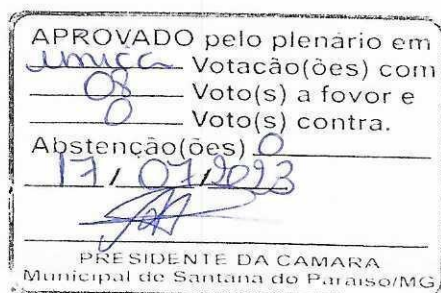 APROVADO pelo plenário em
única Votacão(ões) com
08 Voto(s) a fovor e
0 Voto(s) contra.
Abstenção(ões) 0
17 / 07 / 2023
PRESIDENTE DA CAMARA
Municipal de Santana do Paraiso/MG